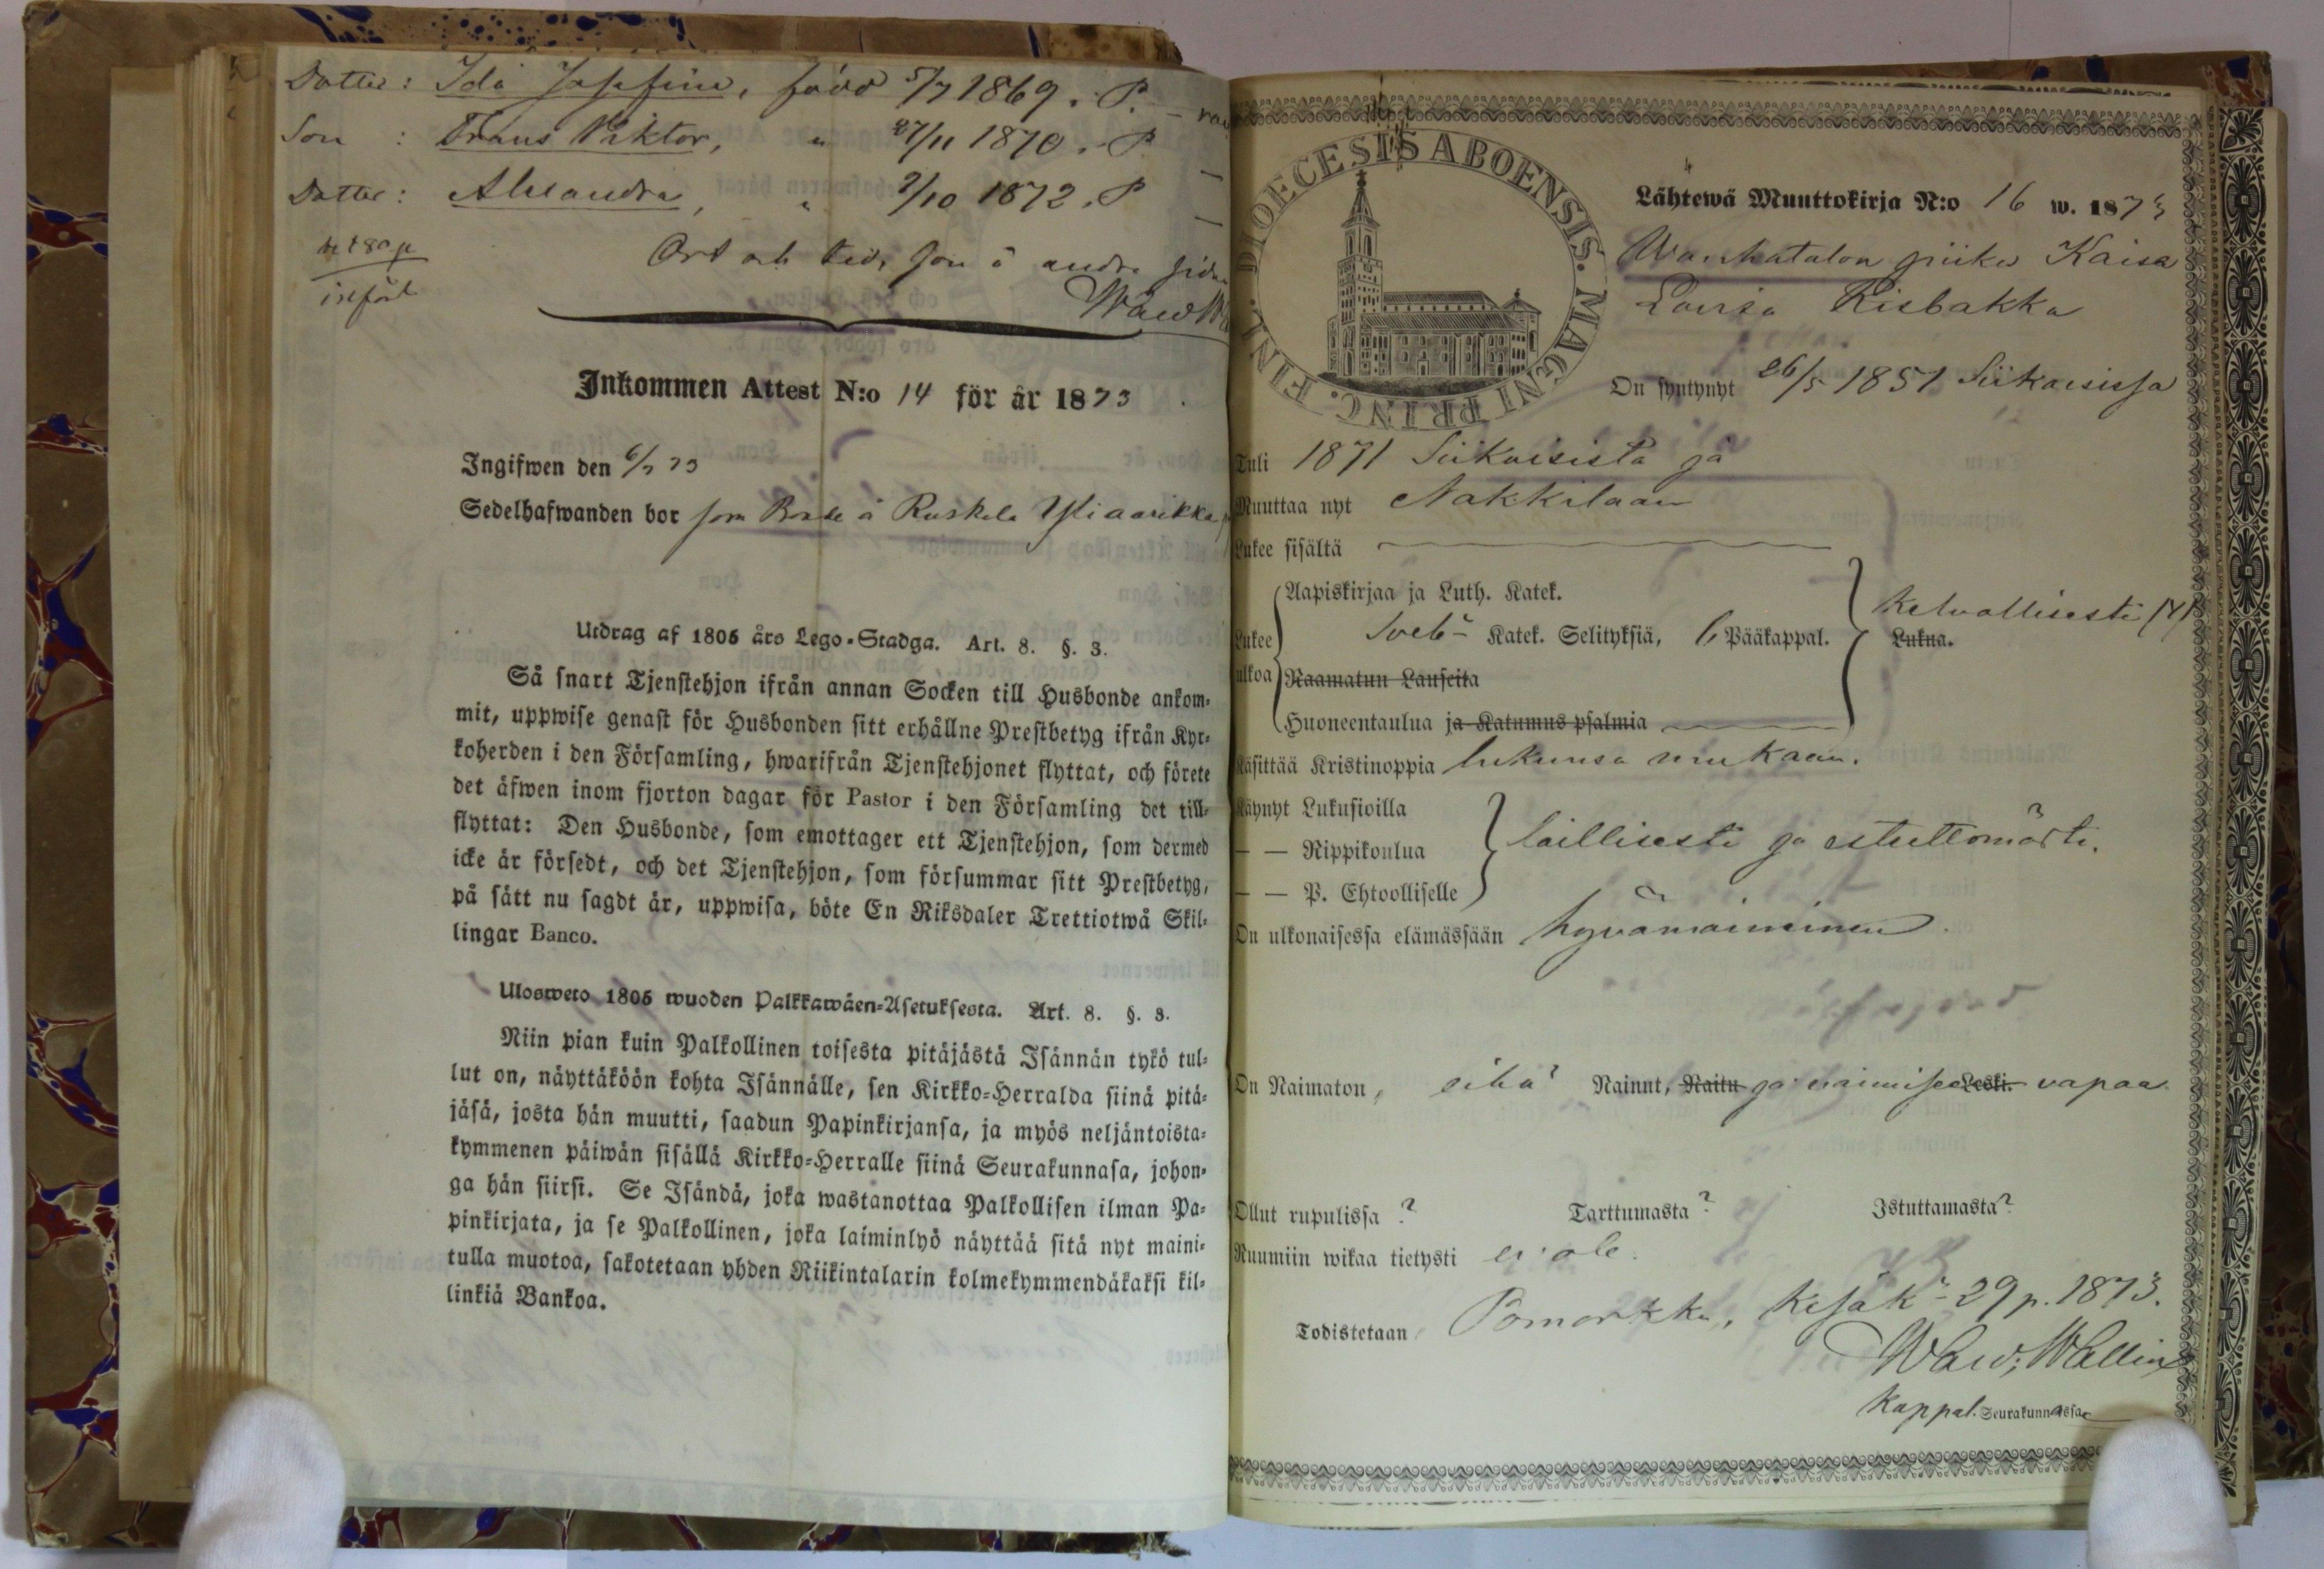 Dotter: Ida Josefina, född 5/7 1869. P.
Son : Frans Viktor, " 27/11 1870. P
Dotter: Alexandra, " 2/10 1872. P
Ort och tid, som å andra sidan
infört
Inkommen Attest N:o 14 för år 1873
Ingifwen den 6/7 73
Sedelhafwanden bor som å Ruskela Yliaarikka
Utdrag af 1805 års Lego-Stadga. Art. 8. §. 3.
Så snart Tjenstehjon ifrån annan Socken till Husbonde ankom-
mit, uppwise genast för Husbonden sitt erhållne Prestbetyg ifrån Kyr-
koherden i den Församling, hwarifrån Tjenstehjonet flyttat, och förete
det äfwen inom fjorton dagar för Pastor i den Församling det till-
flyttat: Den Husbonde, som emottager ett Tjenstehjon, som dermed
icke är försedt, och det Tjenstehjon, som försummar sitt Prestbetyg,
på sätt nu sagdt är, uppwisa, böte En Riksdaler Trettiotwå Skil-
lingar Banco.
Ulosweto 1805 wuoden Palkkawäen-Asetuksesta. Art. 8. §. 3.
Niin pian kuin Palkollinen toisesta pitäjästä Isännän tykö tul-
lut on, näyttäköön kohta Isännälle, sen Kirkko-Herralda siinä pitä-
jäsä, josta hän muutti, saadun Papinkirjansa, ja myös neljäntoista-
kymmenen päiwän sisällä Kirkko-Herralle siinä Seurakunnasa, johon-
ga hän siirsi. Se Isändä, joka wastanottaa Palkollisen ilman Pa-
pinkirjata, ja se Palkollinen, joka laiminlyö näyttää sitä nyt maini-
tulla muotoa, sakotetaan yhden Riikintalarin kolmekymmendäkaksi kil-
linkiä Bankoa.
DIOECESIS ABOENSIS. MAGNI PRINC. FINL.
Lähtewä Muuttokirja N:o 16 w. 1873
Wanhatalon piika Kaisa
Lovisa Risbakka
On syntynyt 26/5 1851 Siikaisissa
Tuli 1871 Siikaisista ja
Muuttaa nyt Nakkilaan
Lukee sisältä
Aapiskirjaa ja Luth. Katek.
Lukee ulkoa Sveb- Katek. Selityksiä, 6 Pääkappal. Kelvollisesti Lukua.
Raamatun Lauseita
Huoneentaulua ja Katumus psalmia
Käsittää Kristinoppia lukunsa mukaan.
Käynyt Lukusioilla
— — Rippikoulua laillisesti ja esteettömästi.
— — P. Ehtoolliselle
On ulkonaisessa elämässään hyvämaininen.
On Naimaton, eikä Nainut, Naitu ja naimisee Leski. vapaa
Ollut rupulissa ? Tarttumasta ? Istuttamasta ?
Ruumiin wikaa tietysti ei ole.
Todistetaan Pomarkku, Kesäk- 29 p. 1873.
Waw: Wallin
Kappal. Seurakunnassa